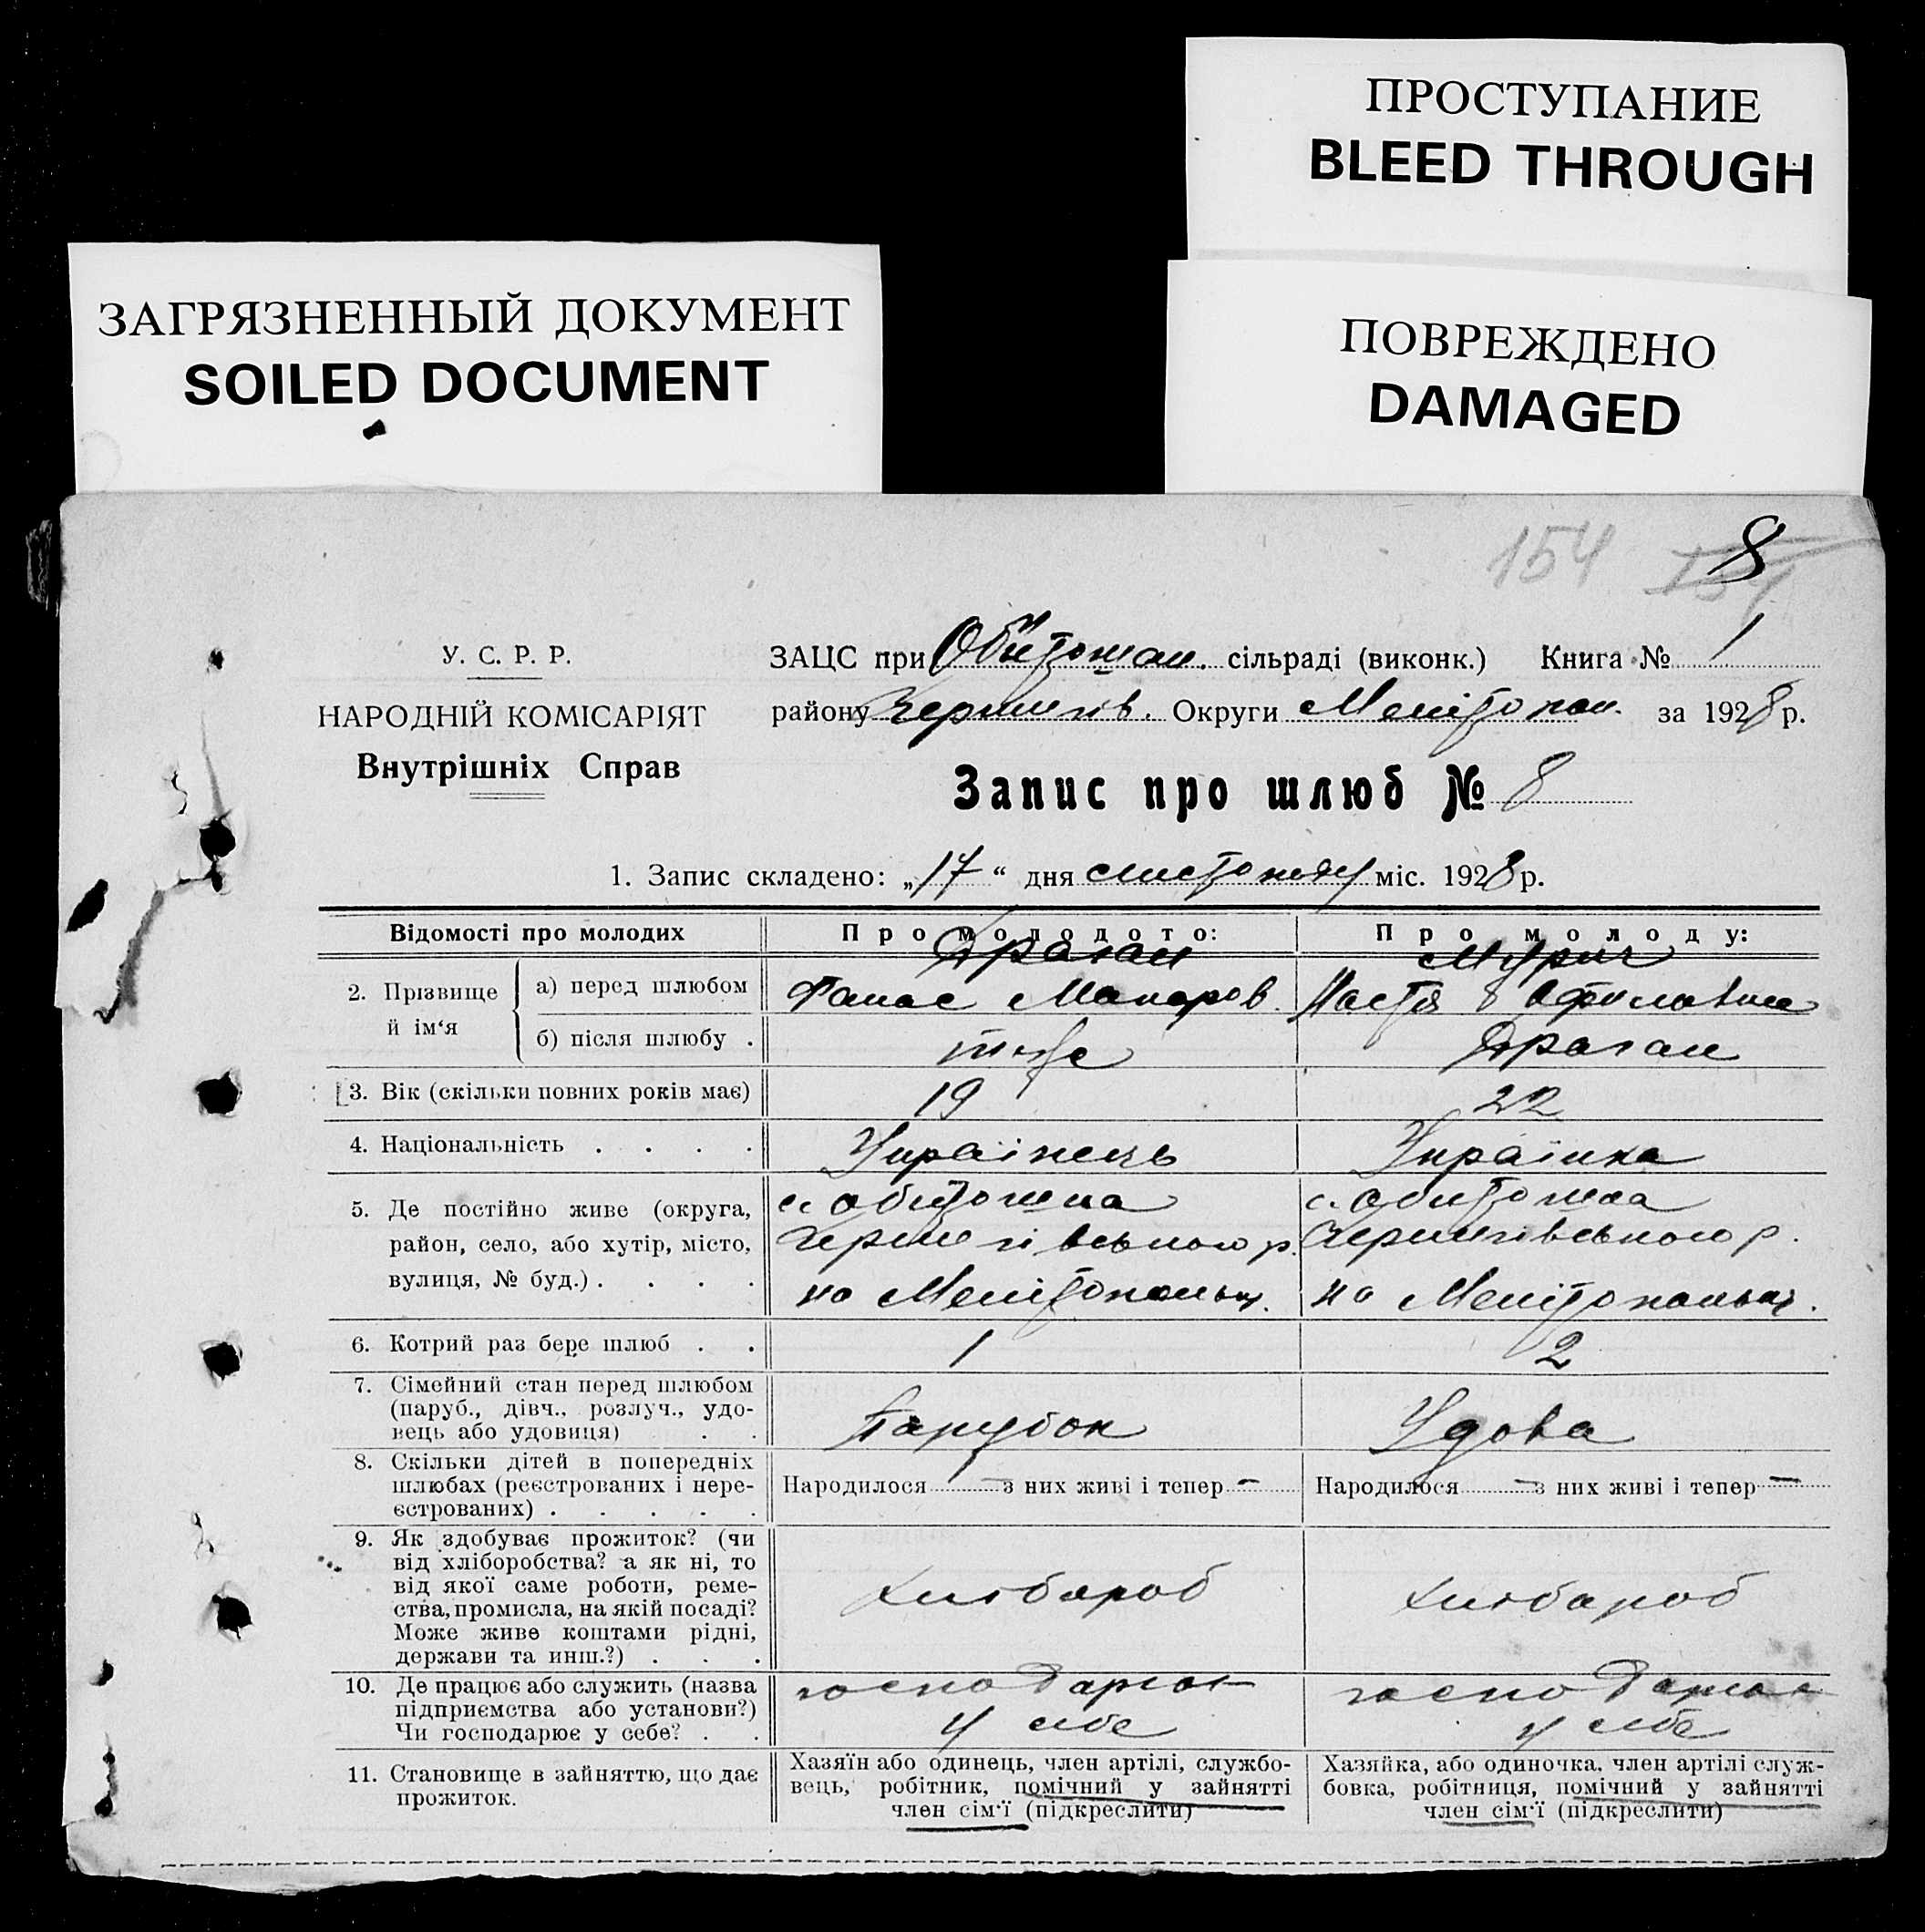 ПРОСТУПАНИЕ
BLEED THROUGH
ЗАГРЯЗНЕННЫЙ ДОКУМЕНТ
SOILED DOCUMENT
ПОВРЕЖДЕНО
DAMAGED
154 8
У. С. Р. Р.
НАРОДНІЙ КОМІСАРІЯТ
Внутрішніх Справ
ЗАЦС при Обіточан. сільраді (виконк.) Книга № 1
району Чернигів. Округи Мелітопол. за 1928 р.
Запис про шлюб № 8
1. Запис складено: „17“ дня листопаду міс. 1928 р.
Відомості про молодих
Про молодого:
Про молоду:
2. Прізвище й ім‘я
а) перед шлюбом
Драган
Панас Макаров.
Настя
б) після шлюбу .
теж
Драган
3. Вік (скільки повних років має)
19
22
4. Національність . . . .
Українець
Українка
5. Де постійно живе (округа,
район, село, або хутір, місто,
вулиця, № буд.) . . . .
с. Обиточна
Чернигівського р.
на Мелітопольщ.
с. Обиточна
Чернигівського р.
на Мелітопольщ.
6. Котрий раз бере шлюб . .
1
2
7. Сімейний стан перед шлюбом
(паруб., дівч., розлуч., удо-
вець або удовиця) . .
Парубок
Удова
8. Скільки дітей в попередніх
шлюбах (реєстрованих і нере-
єстрованих) . . . . .
Народилося — з них живі і тепер —
Народилося — з них живі і тепер —
9. Як здобуває прожиток? (чи
від хліборобства? а як ні, то
від якої саме роботи, реме-
ства, промисла, на якій посаді?
Може живе коштами рідні,
держави та инш.?) . . .
Хлібароб
Хлібароб
10. Де працює або служить (назва
підприємства або установи?)
Чи господарює у себе? . .
господарює
у себе
господарює
у себе
11. Становище в зайняттю, що дає
прожиток.
Хазяїн або одинець, член артілі, службо-
вець, робітник, помічний у зайнятті
член сім‘ї (підкреслити)
Хазяйка, або одиночка, член артілі служ-
бовка, робітниця, помічний у зайнятті
член сім‘ї (підкреслити)